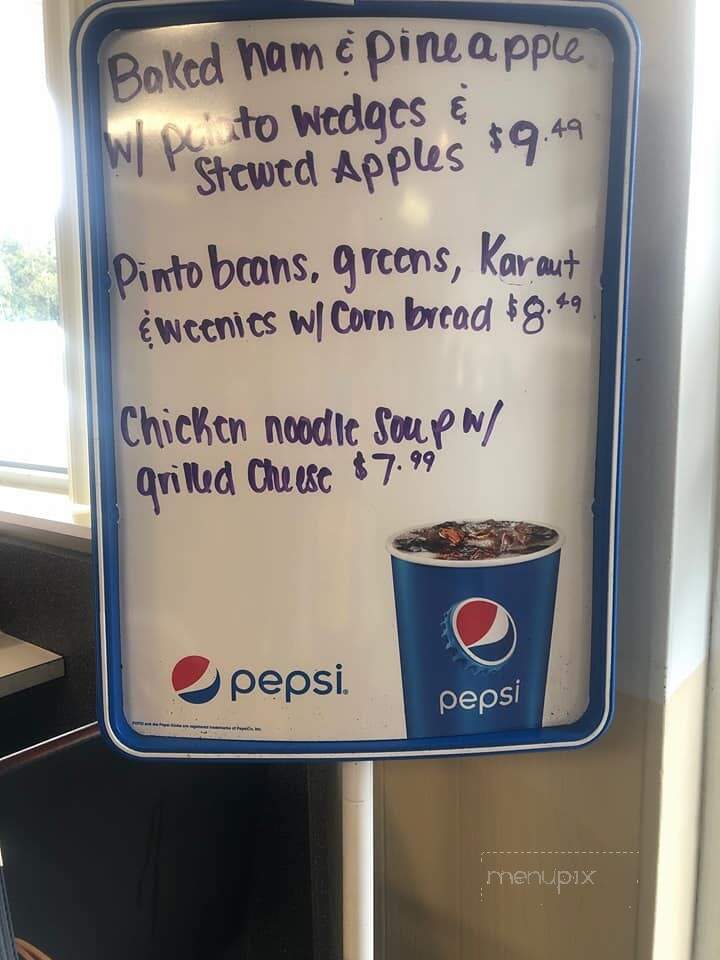 Baked ham & pineapple
w/ potato wedges &
Stewed Apples $9.49
Pinto beans, greens, Karaut
& weenies w/ Corn bread $8.49
Chicken noodle Soup w/
grilled Cheese $7.99
pepsi
pepsi
menupix